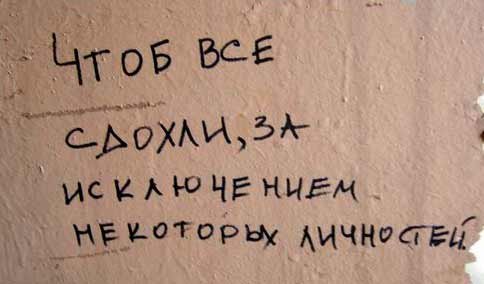 ЧТОБ ВСЕ
СДОХЛИ, ЗА
ИСКЛЮЧЕНИЕМ
НЕКОТОРЫХ ЛИЧНОСТЕЙ.